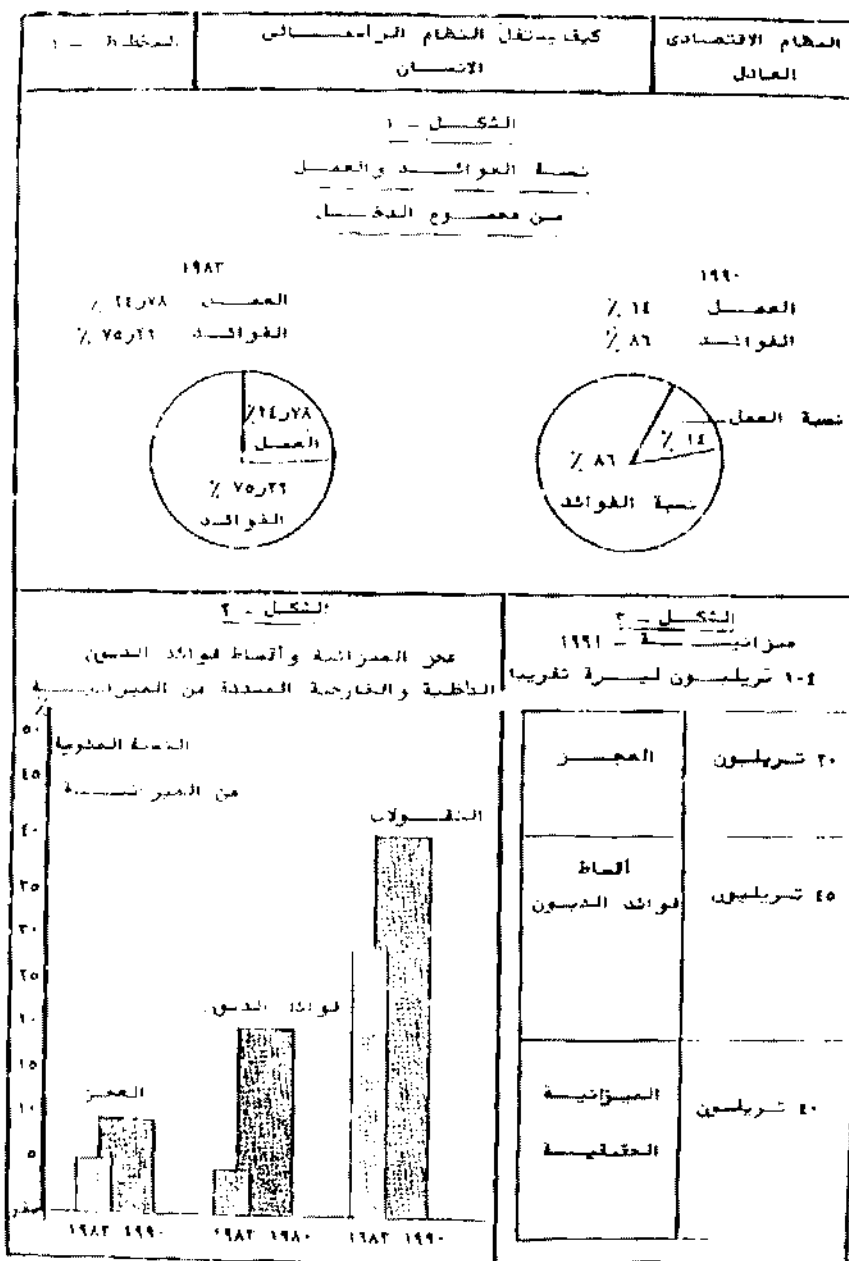 النظام الاقتصادى
العادل
كيف يستغل النظام الرأسمالى
الانسان
المخطط - ١
الشكل - ١
نسبة الفوائد والعمل
من مجموع الدخل
١٩٩٠
العمل ١٤ %
الفوائد ٨٦ %
نسبة العمل
١٤ %
٨٦ %
نسبة الفوائد
١٩٨٣
العمل ٢٤ر٧٨ %
الفوائد ٧٥ر٢٩ %
٢٤ر٧٨%
العمل
٧٥ر٢٩ %
الفوائد
الشكل - ٣
ميزانية - ١٩٩١
١٠٤ تريليون ليرة تقريبا
العجز
٢٠ تريليون
أقساط
فوائد الديون
٤٥ تريليون
الميزانية
الحقيقية
٤٠ تريليون
الشكل - ٢
عجز الميزانية وأقساط فوائد الديون
والخارجية المسددة من الميزانية
%
النسبة المئوية
من الميزانية
٥٠
٤٥
٤٠
٣٥
٣٠
٢٥
٢٠
١٥
١٠
٥
صفر
العجز
فوائد الديون
النقولات
١٩٨٣ ١٩٩٠
١٩٨٣ ١٩٨٠
١٦٨٣ ١٩٩٠